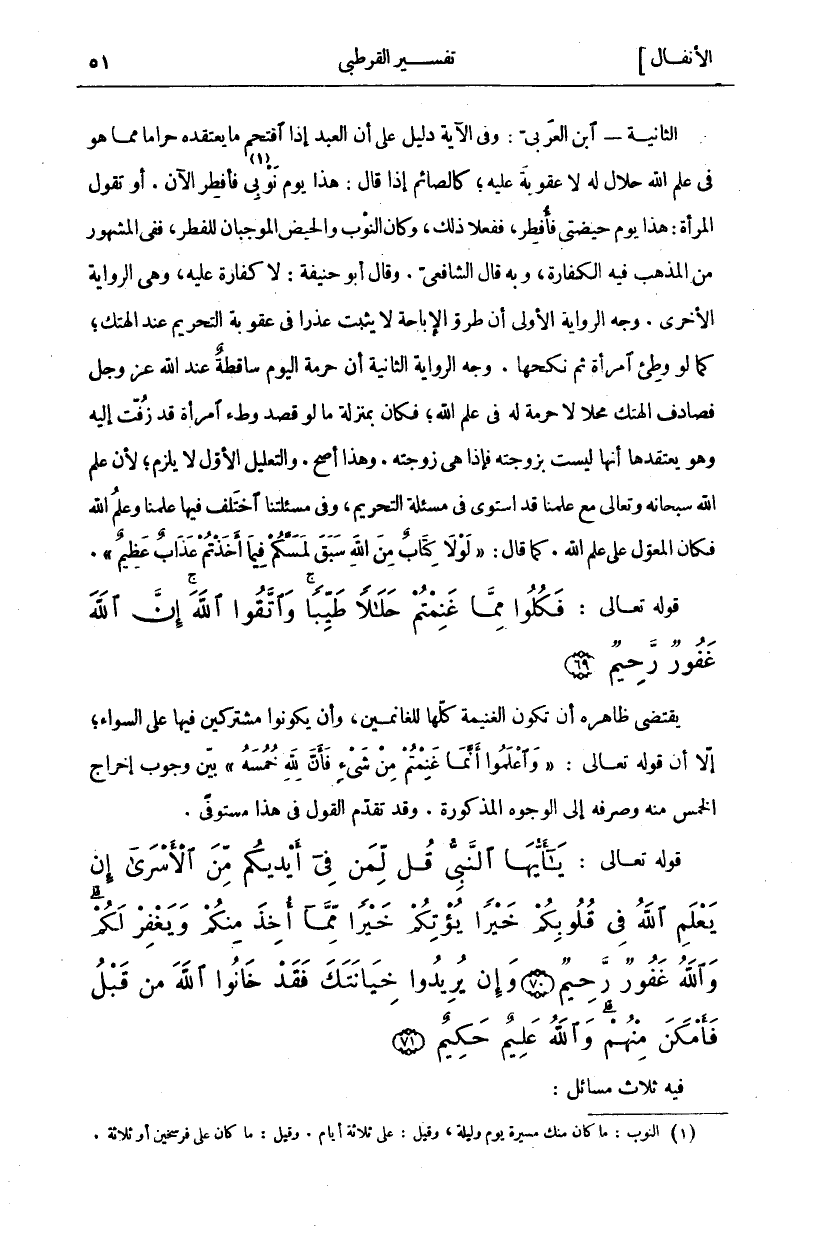 الأنفـال ] تفســـير القرطبى ٥١
الثانيـة ــ آبن العرَبىّ : وفى الآية دليل على أن العبد إذا آفتحم ما يعتقده حراما ممـا هو
فى علم الله حلال له لا عقوبةَ عليه؛ كالصائم إذا قال : هذا يوم نَوْبِى(١) فأفطر الآن . أو تقول
المرأة : هذا يوم حيضتى فأُفطِر، ففعلا ذلك، وكان النوْب والحيض الموجبان للفطر، ففى المشهور
من المذهب فيه الكفارة، وبه قال الشافعىّ . وقال أبو حنيفة : لا كفارة عليه، وهى الرواية
الأخرى . وجه الرواية الأولى أن طروّ الإباحة لا يثبت عذرا فى عقوبة التحريم عند الهتك؛
كما لو وطِئ آمرأة ثم نكحها . وجه الرواية الثانية أن حرمة اليوم ساقطةٌ عند الله عز وجل
فصادف الهتك محلا لا حرمة له فى علم الله؛ فكان بمنزلة ما لو قصد وطء آمرأة قد زُفّت إليه
وهو يعتقدها أنها ليست بزوجته فإذا هى زوجته . وهذا أصح . والتعليل الأوّل لا يلزم؛ لأن علم
الله سبحانه وتعالى مع علمنا قد استوى فى مسئلة التحريم، وفى مسئلتنا آختلف فيها علمنا وعلمُ الله
فكان المعوّل على علم الله . كما قال : « لَوْلَا كِتَابٌ مِنَ اللهِ سَبَقَ لَمَسَّكُمْ فِيمَا أَخَذْتُمْ عَذَابٌ عَظِيمٌ » .
قوله تعـالى : فَكُلُوا مِمَّا غَنِمْتُمْ حَلَـٰلًا طَيِّبًاۚ وَٱتَّقُوا ٱللَّهَۚ إِنَّ ٱللَّهَ
غَفُورٌ رَّحِيمٌ ٦٩
يقتضى ظاهره أن تكون الغنيمة كلّها للغانمـين، وأن يكونوا مشتركين فيها على السواء؛
إلّا أن قوله تعـالى : « وَٱعْلَمُوا أَنَّمَـا غَنِمْتُمْ مِنْ شَىْءٍ فَأَنَّ لِلهِ خُمُسَهُ » بيّن وجوب إخراج
الخمس منه وصرفه إلى الوجوه المذكورة . وقد تقدّم القول فى هذا مستوفًى .
قوله تعـالى : يَـٰٓأَيُّهَـا ٱلنَّبِىُّ قُـل لِّمَن فِىٓ أَيْدِيكُم مِّنَ ٱلْأَسْرَىٰٓ إِن
يَعْلَمِ ٱللَّهُ فِى قُلُوبِكُمْ خَيْرًا يُؤْتِكُمْ خَيْرًا مِّمَّآ أُخِذَ مِنكُمْ وَيَغْفِرْ لَكُمْۗ
وَٱللَّهُ غَفُورٌ رَّحِيمٌ ٧٠ وَإِن يُرِيدُوا خِيَانَتَكَ فَقَدْ خَانُوا ٱللَّهَ مِن قَبْلُ
فَأَمْكَنَ مِنْهُمْۗ وَٱللَّهُ عَلِيمٌ حَكِيمٌ ٧١
فيه ثلاث مسائل :
(١) النوب : ما كان منك مسيرة يوم وليلة، وقيل : على ثلاثة أيام . وقيل : ما كان على فرسخين أو ثلاثة .